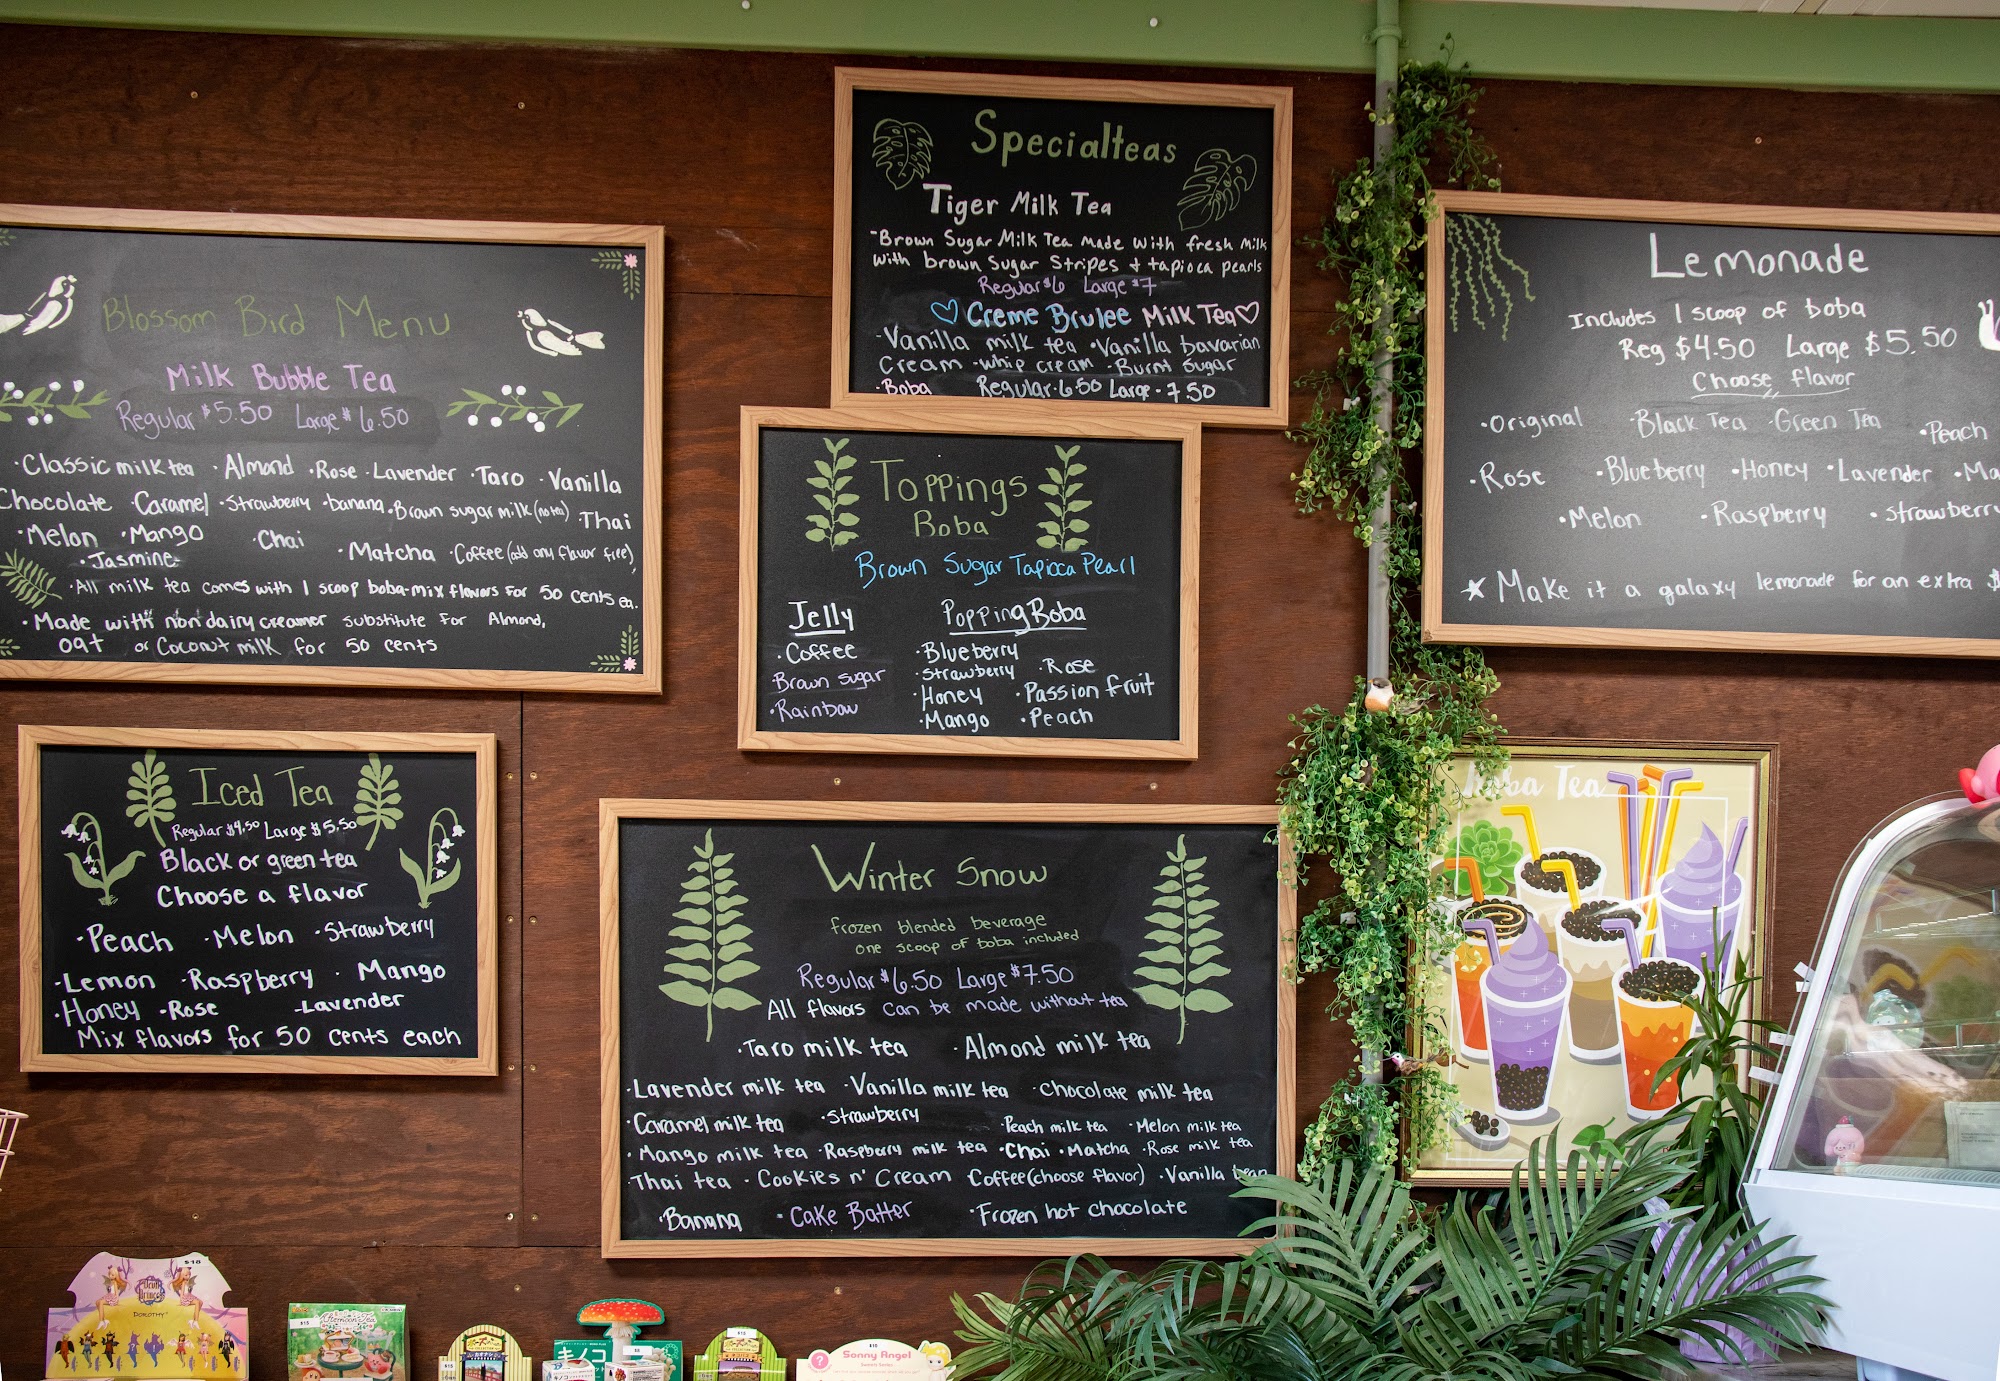 Specialteas
Tiger Milk Tea
-Brown Sugar Milk Tea made with fresh milk
with brown Sugar Stripes + tapioca pearls
Regular $6 Large $7
♡ Creme Brulee Milk Tea♡
·Vanilla milk tea ·Vanilla bavarian
Cream ·whip cream ·Burnt Sugar
·Boba Regular-6.50 Large-7.50
Blossom Bird Menu
Milk Bubble Tea
Regular $5.50 Large $6.50
·Classic milk tea ·Almond ·Rose ·Lavender ·Taro ·Vanilla
Chocolate ·Caramel ·Strawberry ·banana ·Brown sugar milk (no tea) ·Thai
·Melon ·Mango ·Chai ·Matcha ·Coffee (add any flavor free)
·Jasmine
·All milk tea comes with 1 scoop boba-mix flavors for 50 cents ea.
·Made with non dairy creamer substitute for Almond,
oat or Coconut milk for 50 cents
Toppings
Boba
Brown Sugar Tapioca Pearl
Jelly
·Coffee
·Brown sugar
·Rainbow
Popping Boba
·Blueberry
·Strawberry ·Rose
·Honey ·Passion fruit
·Mango ·Peach
Lemonade
Includes 1 scoop of boba
Reg $4.50 Large $5.50
Choose flavor
·Original ·Black Tea ·Green Tea ·Peach
·Rose ·Blueberry ·Honey ·Lavender ·Ma
·Melon ·Raspberry ·Strawberry
★ Make it a galaxy lemonade for an extra $
Iced Tea
Regular $4.50 Large $5.50
Black or green tea
Choose a flavor
·Peach ·Melon ·Strawberry
·Lemon ·Raspberry ·Mango
·Honey ·Rose ·Lavender
Mix flavors for 50 cents each
Winter Snow
frozen blended beverage
one scoop of boba included
Regular $6.50 Large $7.50
All flavors can be made without tea
·Taro milk tea ·Almond milk tea
·Lavender milk tea ·Vanilla milk tea ·Chocolate milk tea
·Caramel milk tea ·Strawberry ·Peach milk tea ·Melon milk tea
·Mango milk tea ·Raspberry milk tea ·Chai ·Matcha ·Rose milk tea
·Thai tea ·Cookies n' Cream Coffee (choose flavor) ·Vanilla bean
·Banana ·Cake Batter ·Frozen hot chocolate
Boba Tea
$18
DOROTHY
$15
Afternoon Tea
$15
キノコ
$8
$15
$10
Sonny Angel